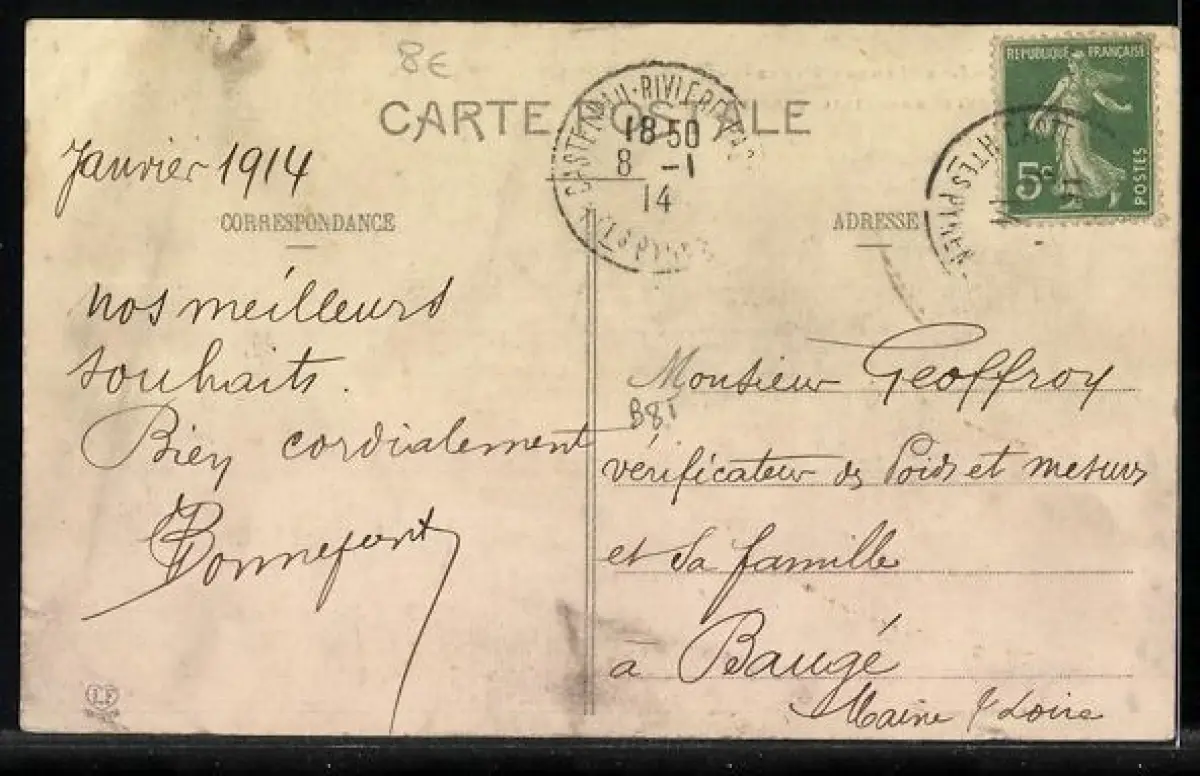 8€
CARTE POSTALE
CASTELNAU-RIVIERE-BASSE
18 50
8 -1
14
HTES PYRÉNÉES
REPUBLIQUE FRANÇAISE
5c
POSTES
Janvier 1914
CORRESPONDANCE
nos meilleurs
souhaits.
Bien cordialement
Bonnefont
ADRESSE
Monsieur Geoffroy
B81
vérificateur des Poids et mesures
et sa famille
à Baugé
Maine & Loire